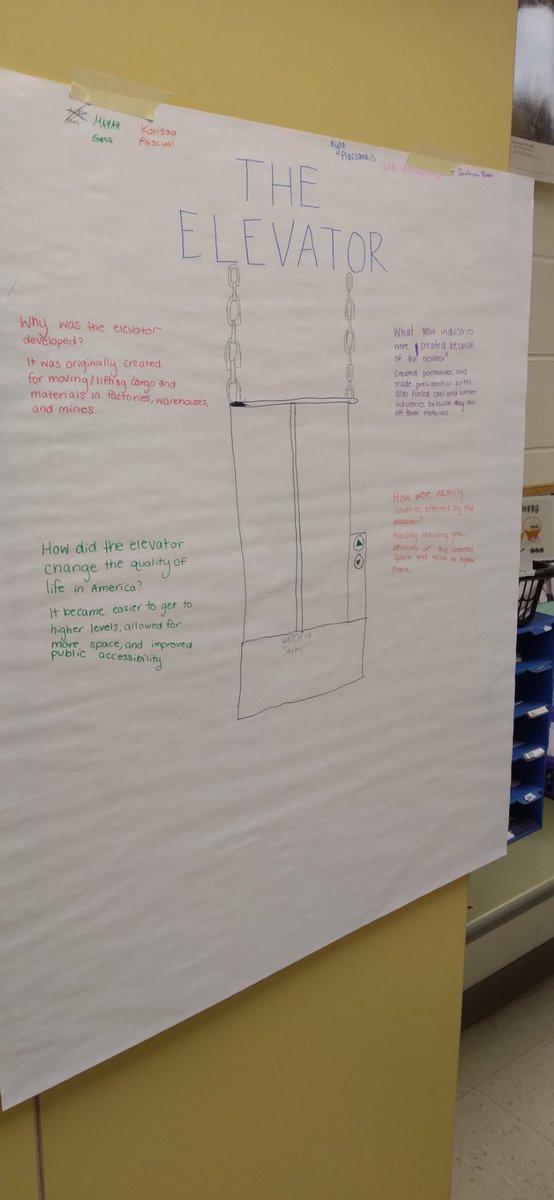 MAYAH
Garcia
Karissa
Pascual
Kyla
THE
ELEVATOR
Why was the elevator
developed?
It was originally created
for moving/lifting cargo and
materials in factories, warehouses,
and mines.
How did the elevator
change the quality of
life in America?
It became easier to get to
higher levels, allowed for
more space, and improved
public accessibility.
What new industries
were created because
of the elevator?
Created penthouses, and
made presidential suites.
also fueled coal and
industries because they ran
off those materials
How were existing
industries effected by the
elevator?
Housing industry grew
because of the
space and access to higher
floors.
WATCH UR
STEP!!